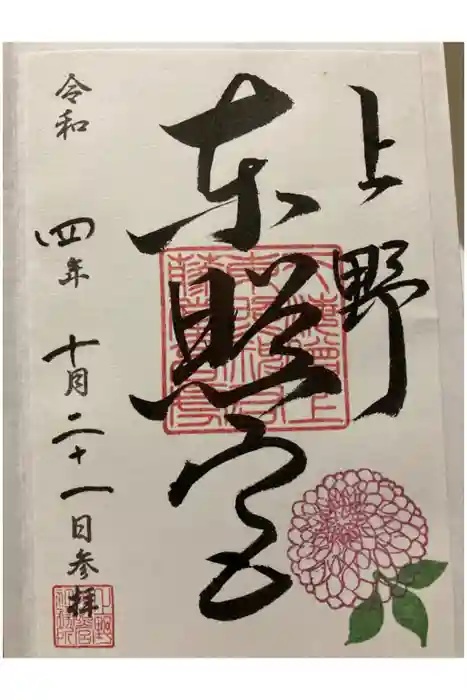 上野
東照宮
令和四年十月二十一日参拝